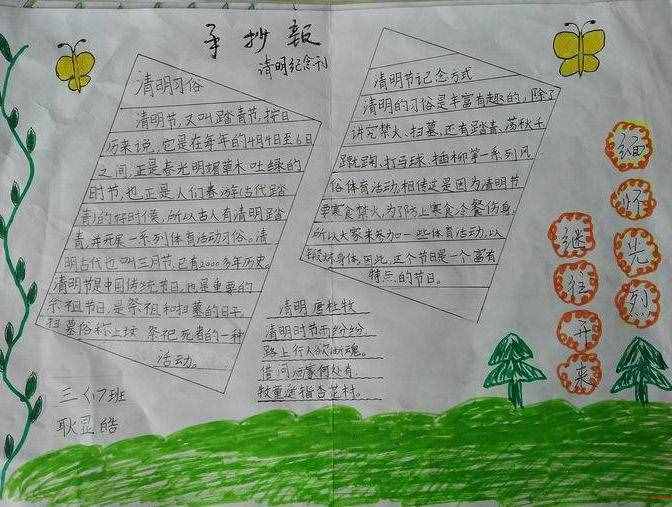 手抄报
清明纪念刊
清明习俗
清明节,又叫踏青节,按日
历来说,它是在每年的4月4日至6日
之间,正是春光明媚草木吐绿的
时节,也正是人们春游(古代踏
青)的好时候,所以古人有清明踏
青,并开展一系列体育活动习俗。清
明古代也叫三月节,已有2000多年历史。
清明节是中国传统节日,也是重要的
祭祖节日,是祭祖和扫墓的日子。
扫墓俗称上坟,祭祀死者的一种
活动。
三〈1〉班
耿显皓
清明节记念方式
清明的习俗是丰富有趣的,除了
讲究禁火、扫墓,还有踏青、荡秋千、
蹴鞠、打马球、插柳等一系列风
俗体育活动。相传这是因为清明节
要寒食禁火,为了防止寒食冷餐伤身,
所以大家来参加一些体育活动,以
锻炼身体。因此,这个节日是一个富有
特点的节日。
清明 唐杜牧
清明时节雨纷纷,
路上行人欲断魂。
借问酒家何处有,
牧童遥指杏花村。
缅怀先烈
继往开来